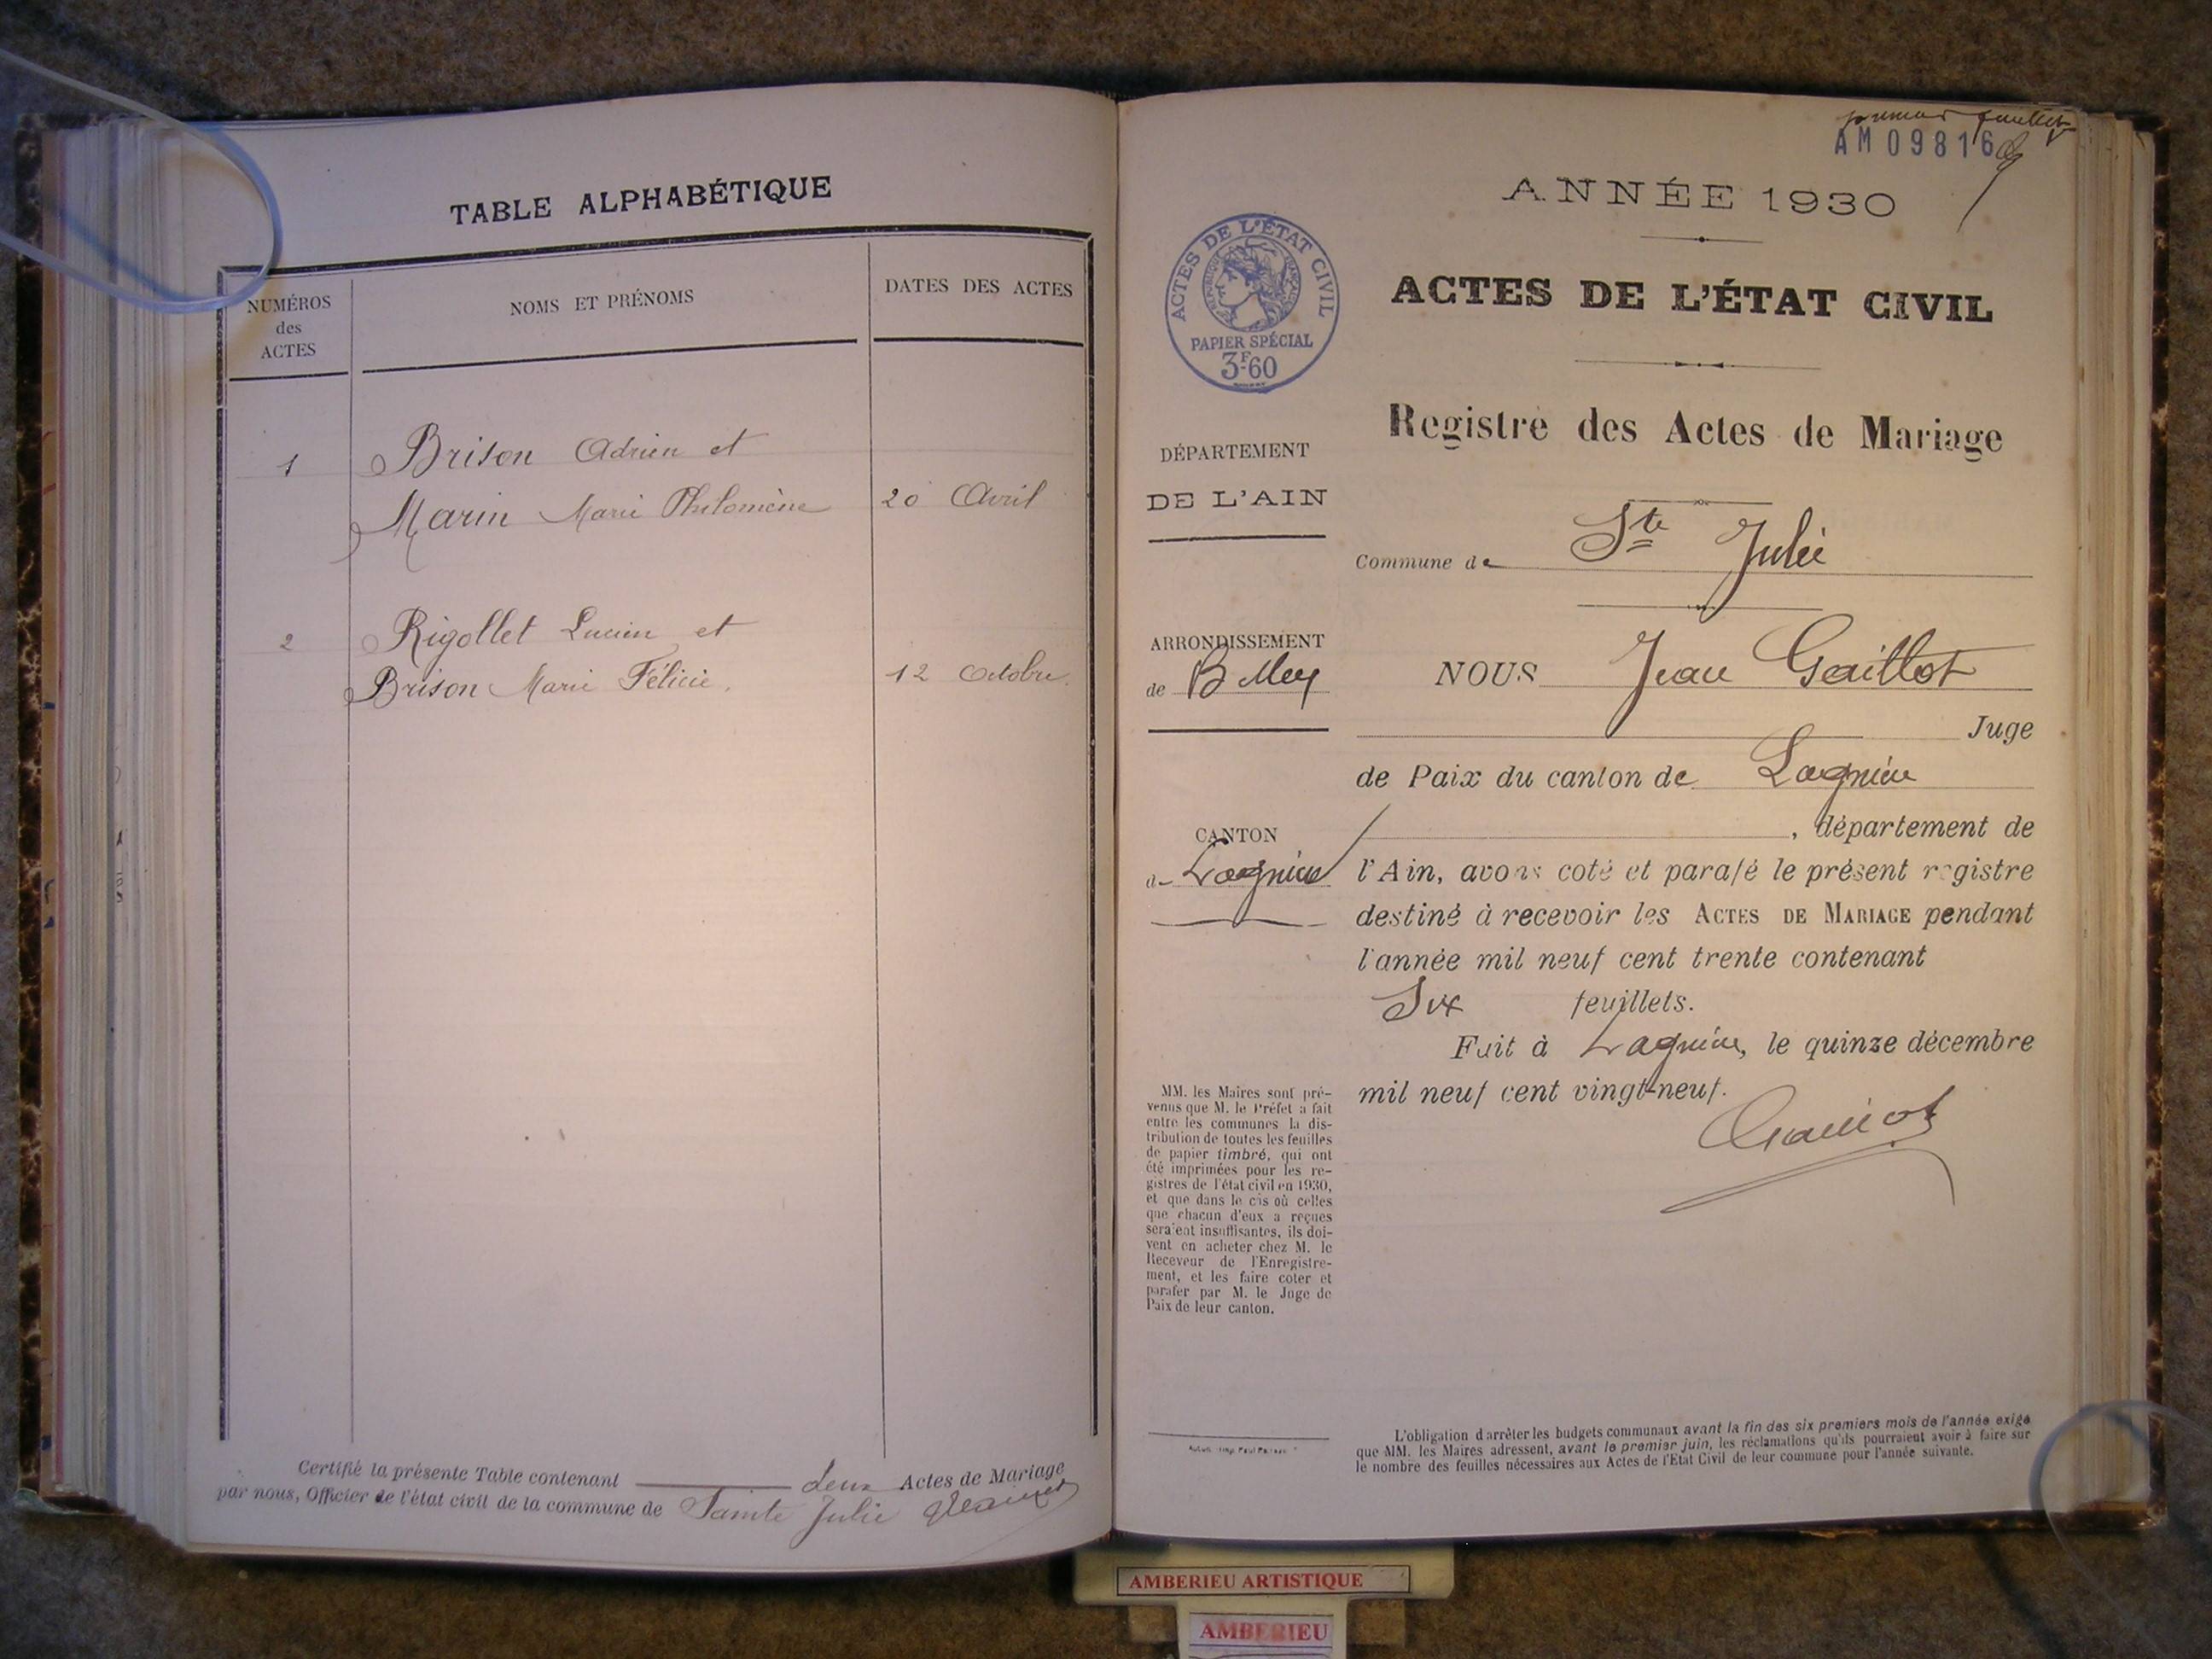 TABLE ALPHABÉTIQUE
NUMÉROS
des
ACTES
NOMS ET PRÉNOMS
DATES DES ACTES
1
Brison Adrien et
Marin Marie Philomène
20 Avril
2
Rigollet Lucien et
Brison Marie Félicie.
12 Octobre
Certifié la présente Table contenant deux Actes de Mariage
par nous, Officier de l'état civil de la commune de Sainte Julie
premier feuillet
AM 09816
ANNÉE 1930
ACTES DE L'ÉTAT CIVIL
RÉPUBLIQUE FRANÇAISE
PAPIER SPÉCIAL
3F60
ACTES DE L'ÉTAT CIVIL
Registre des Actes de Mariage
DÉPARTEMENT
DE L'AIN
Commune de Ste Julie
ARRONDISSEMENT
de Belley
NOUS Jean Gaillot
Juge
de Paix du canton de Lagnieu
, département de
CANTON
de Lagnieu
l'Ain, avons coté et parafé le présent registre
destiné à recevoir les ACTES DE MARIAGE pendant
l'année mil neuf cent trente contenant
Six feuillets.
Fait à Lagnieu, le quinze décembre
mil neuf cent vingt-neuf.
Gaillot
MM. les Maires sont pré-
venus que M. le Préfet a fait
entre les communes la dis-
tribution de toutes les feuilles
de papier timbré, qui ont
été imprimées pour les re-
gistres de l'état civil en 1930,
et que dans le cas où celles
que chacun d'eux a reçues
seraient insuffisantes, ils doi-
vent en acheter chez M. le
Receveur de l'Enregistre-
ment, et les faire coter et
parafer par M. le Juge de
Paix de leur canton.
L'obligation d'arrêter les budgets communaux avant la fin des six premiers mois de l'année exige
que MM. les Maires adressent, avant le premier juin, les réclamations qu'ils pourraient avoir à faire sur
le nombre des feuilles nécessaires aux Actes de l'Etat Civil de leur commune pour l'année suivante.
AMBERIEU ARTISTIQUE
AMBERIEU